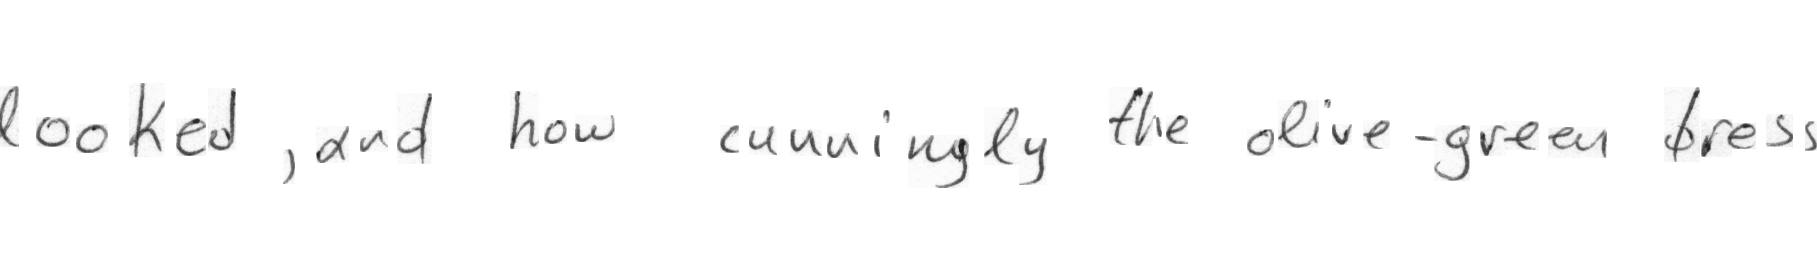 looked, and how cunningly the olive-green dress